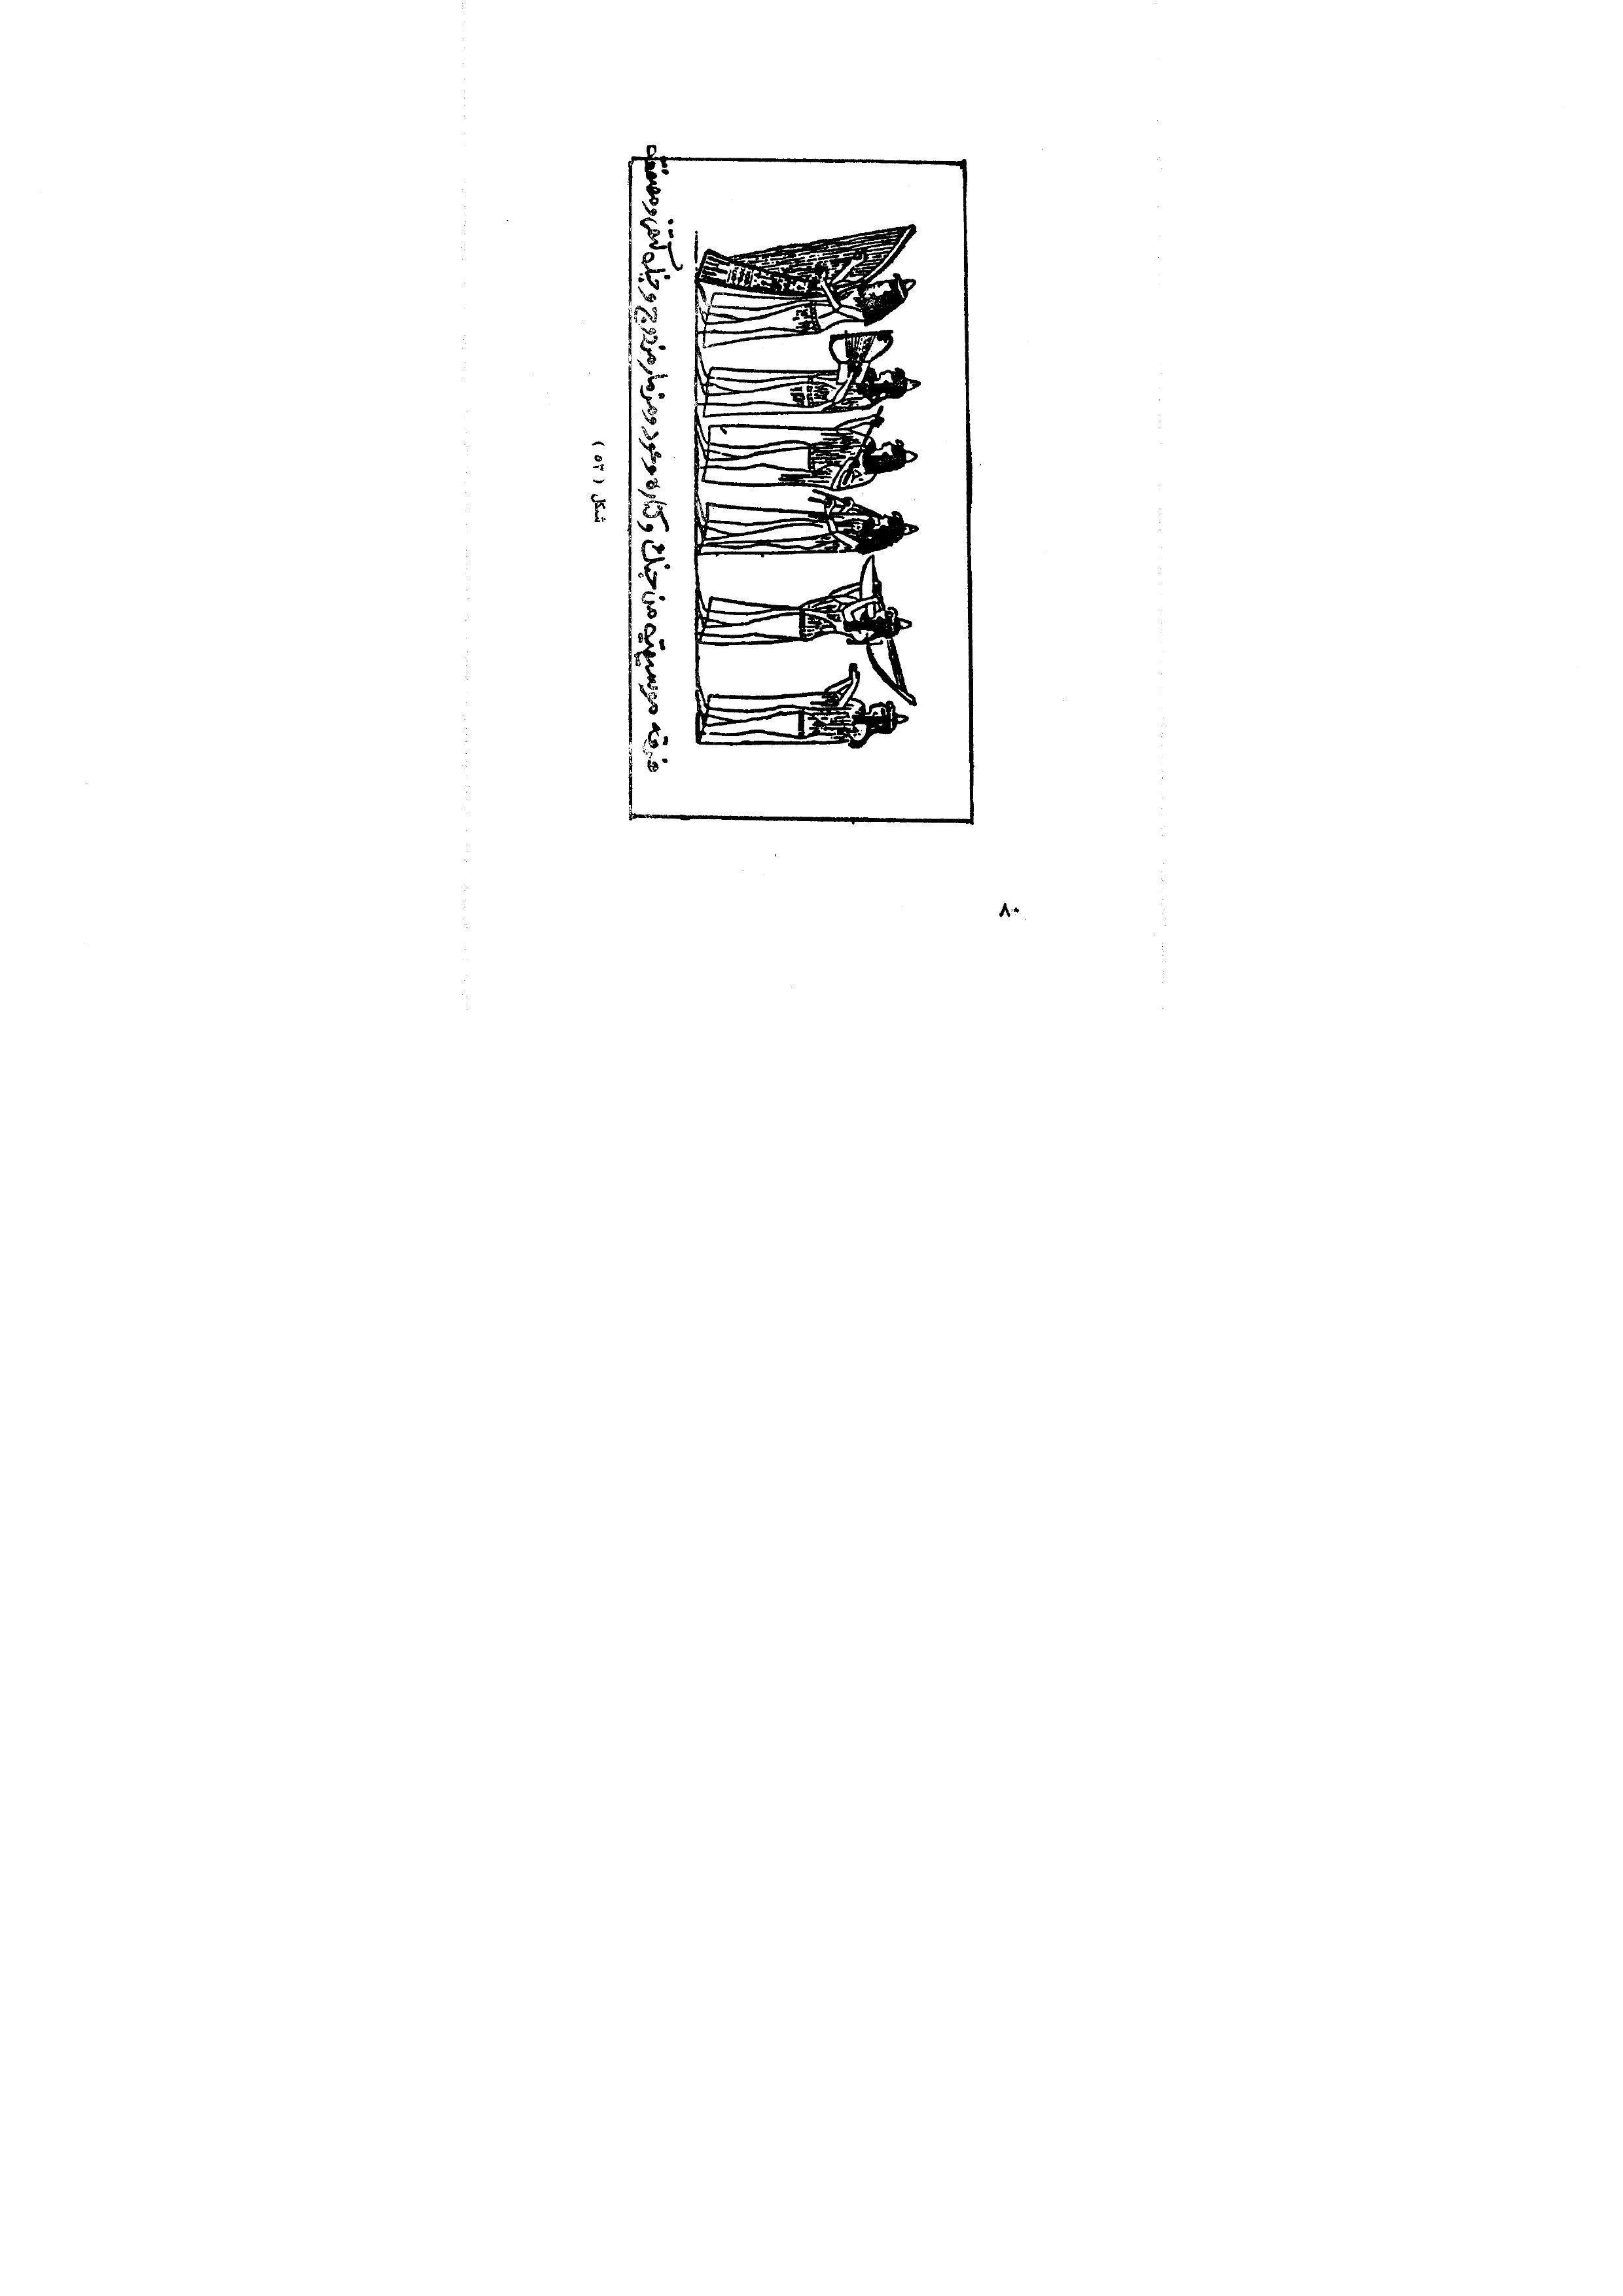 فرقه موسيقيه من جنك وكناره وعود ومزمار مزدوج وجنك كتفى ومصفقه
شكل (٥٣)
٨٠